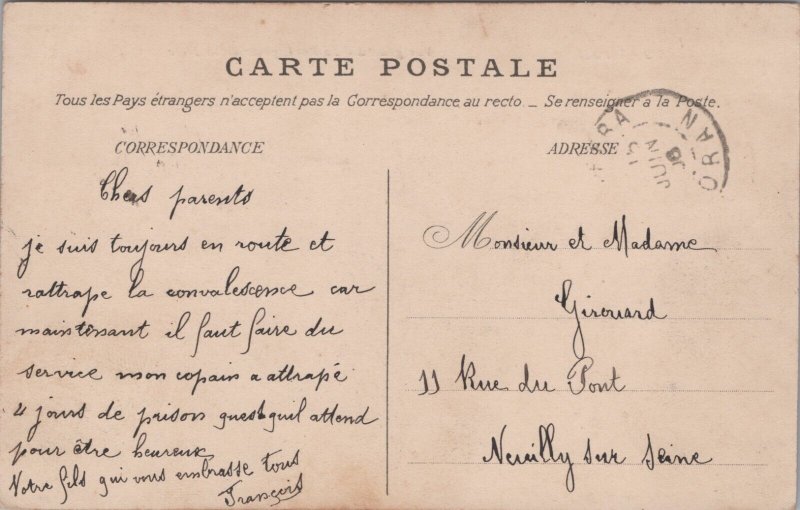 CARTE POSTALE
Tous les Pays étrangers n'acceptent pas la Correspondance au recto _ Se renseigner à la Poste.
CORRESPONDANCE
Chers parents
je suis toujours en route et
rattrape la convalescence car
maintenant il faut faire du
service mon copain a attrapé
4 jours de prison quesqu'il attend
pour être heureux
Votre fils qui vous embrasse tous
François
ADRESSE
13
JUIN
ORAN
Monsieur et Madame
Girouard
11 Rue du Pont
Neuilly sur Seine